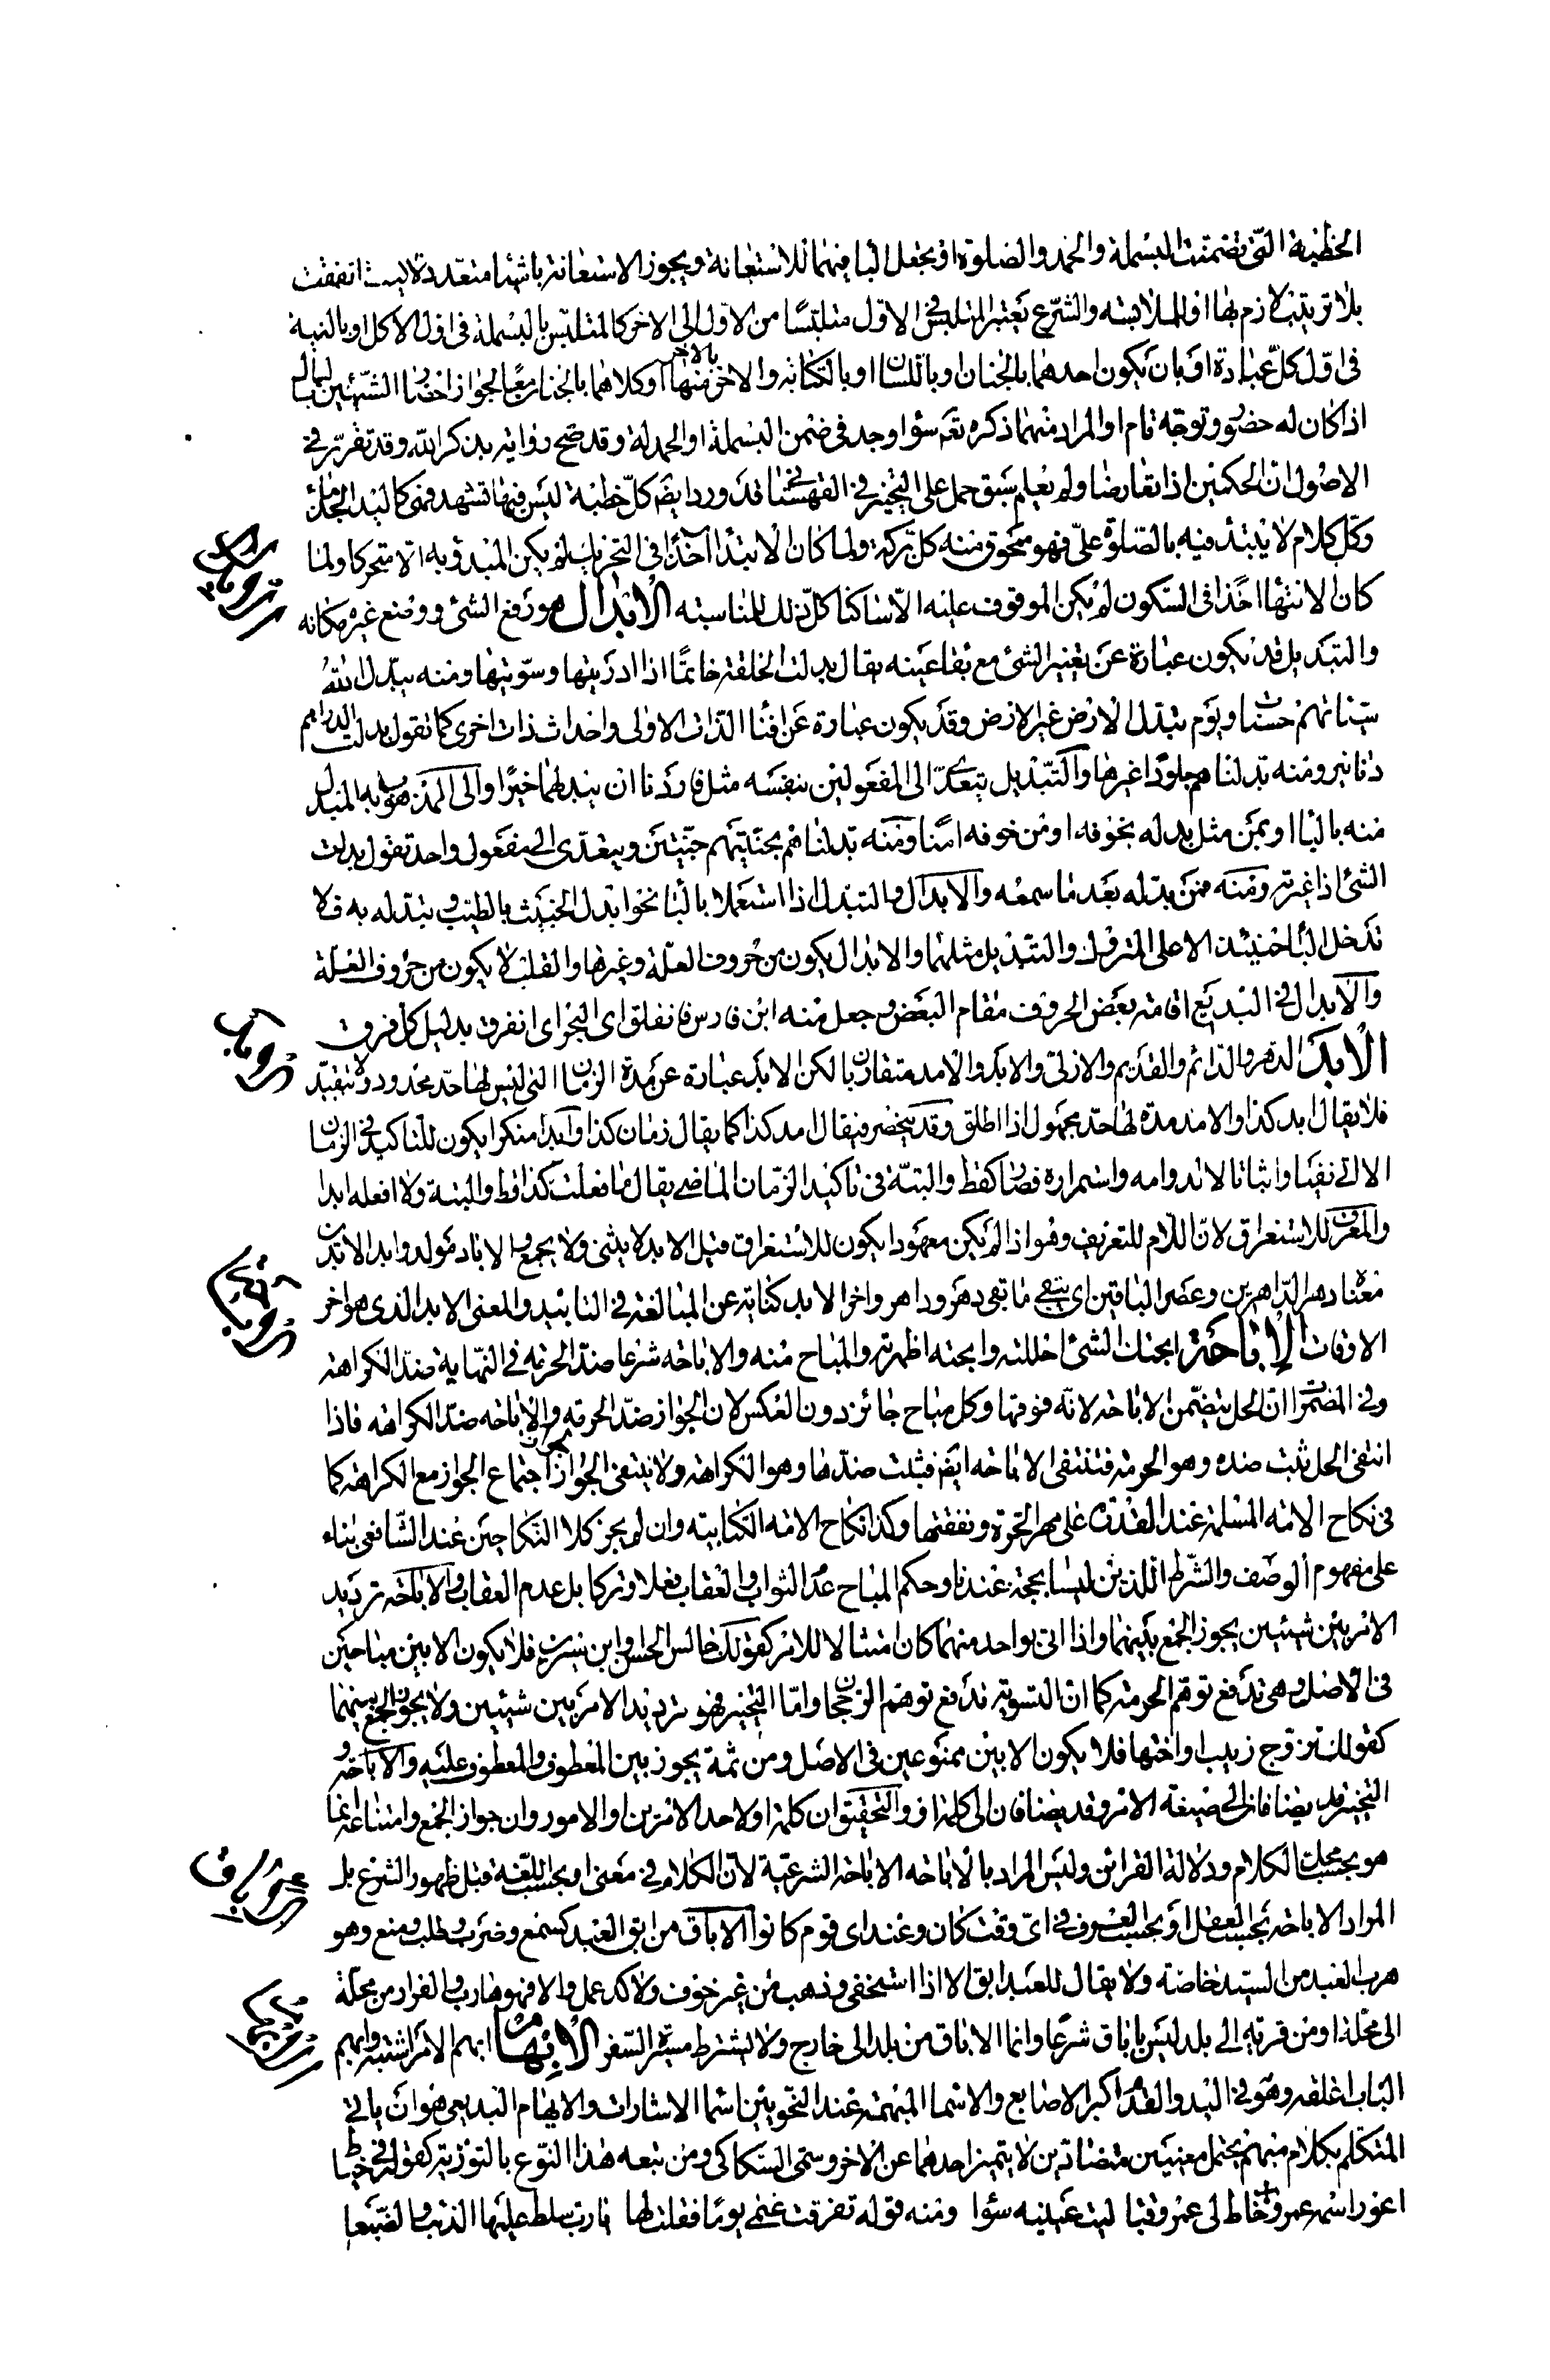 الخطبة التى تضمنت البسملة والحمد والصلوة او بجعل البا فيهما للاستعانة ويجوز الاستعانة باشيا متعددة ليست اتفقت
بلا ترتيب لازم بها او الملابسة والشرع يعتبر المتلبس فى الاول متلبسا من الاول الى الاخر كالمتلبس بالبسملة فى اول الاكل او بالنية
فى اول كل عبادة او بان يكون احدهما بالجنان او باللسان او بالكتابه والاخر منها بالاخر او كلاهما بالجنان معا لجواز احضار الشيئين بالبال
اذا كان له حضور وتوجه تام او المراد منهما ذكره تع سوا وجد فى ضمن البسملة او الحمدلة وقد صح رواية بذكر الله وقد تقرر فى
الاصول ان الحكمين اذا تعارضا ولم يعلم سبق حمل على التخيير فى القهستانى قد ورد ايضا كل خطبة ليس فيها تشهد فهى كاليد الجذماء
وكل كلام لا يبتدئ فيه بالصلوة على فهو ممحوق منه كل بركة ولما كان الابتدا آخذا فى التحرك لم يكن المبدو به الا متحركا ولما
كان الانتها اخذا فى السكون لم يكن الموقوف عليه الا ساكنا كل ذلك للمناسبة الابدال هو رفع الشئ ووضع غيره مكانه
والتبديل قد يكون عبارة عن تغيير الشئ مع بقا عينه يقال بدلت الخلقة خاتما اذا ادرتها وسويتها ومنه يبدل الله
سيئاتهم حسنات ويوم تبدل الارض غير الارض وقد يكون عبارة عن افنا الذات الاولى واحداث ذات اخرى كما تقول بدلت الدراهم
دنانير ومنه بدلناهم جلودا غيرها والتبديل يتعدى الى المفعولين بنفسه مثل فاردنا ان يبدلهما خيرا والى المذهوب به المبدل
منه بالبا او بمن مثل بدله بخوفه او من خوفه امنا ومنه بدلناهم بجنتيهم جنتين ويتعدى الى مفعول واحد تقول بدلت
الشئ اذا غيرته ومنه فمن بدله بعد ما سمعه والابدال والتبدل اذا استعملا بالبا نحو ابدل الخبيث بالطيب وتبدله به فلا
تدخل البا حينئذ الا على المتروك والتبديل مثلهما والابدال يكون من حروف العلة وغيرها والقلب لا يكون من حروف العلة
والابدال فى البديع اقامة بعض الحروف مقام البعض وجعل منه ابن فارس فانفلق اى البحر اى انفرق بدليل كل فرق
الابد الدهر والدائم والقديم والازلى والابد والامد متقاربان لكن الابد عبارة عن مدة الزمان التى ليس لها حد محدود ولا يتقيد
فلا يقال ابد كذا والامد مدة لها حد مجهول اذا اطلق وقد ينحصر فيقال امد كذا كما يقال زمان كذا وابدا منكرا يكون للتاكيد فى الزمان
الاتى نفيا واثباتا لا لدوامه واستمراره فصار كقط والبتة فى تاكيد الزمان الماضى يقال ما فعلت كذا قط والبتة ولا افعله ابدا
والمعرف للاستغراق لان اللام للتعريف وهو اذا لم يكن معهودا يكون للاستغراق قيل الابد لا يثنى ولا يجمع والاباد مولد وابد الابدين
معناه دهر الداهرين وعصر الباقين اى يبقى ما بقى دهر وداهر واخر الابد كناية عن المبالغة فى التابيد والمعنى الابد الذى هو اخر
الاوقات الاباحة ابحتك الشئ احللته وابحته اظهرته والمباح منه والاباحه شرعا ضد الحرمه فى النهاية ضد الكراهة
وفى المضمرات ان الحل يتضمن الاباحة لانه فوقها وكل مباح جائز دون العكس لان الجواز ضد الحرمة والاباحه ضد الكراهه فاذا
انتفى الحل ثبت ضده وهو الحرمة فتنتفى الاباحه ايضا فثبت ضدها وهو الكراهة ولا ينتفى الجواز لجواز اجتماع الجواز مع الكراهة كما
فى نكاح الامه المسلمة عند القدرة على مهر الحرة ونفقتها وكذا نكاح الامه الكتابيه وان لم يجز كلا النكاحين عند الشافعى بناء
على مفهوم الوصف والشرط اللذين ليسا بحجة عندنا وحكم المباح عدم الثواب والعقاب فعلا وتركا بل عدم العقاب والاباحة ترديد
الامر بين شيئين يجوز الجمع بينهما واذا اتى بواحد منهما كان امتثالا للامر كقولك جالس الحسن او ابن سيرين فلا يكون الا بين مباحين
فى الاصل وهى تدفع توهم الحرمة كما ان التسوية تدفع توهم الرجحان واما التخيير فهو ترديد الامر بين شيئين ولا يجوز الجمع بينهما
كقولك تزوج زينب او اختها فلا يكون الا بين ممنوعين فى الاصل ومن ثمة يجوز بين المعطوف والمعطوف عليه والاباحة و
التخيير قد يضافان الى صيغة الامر وقد يضافان الى كلمة او والتحقيق ان كلمة او لاحد الامرين او الامور وان جواز الجمع وامتناعه انما
هو بحسب محل الكلام ودلالة القرائن وليس المراد بالاباحه الاباحة الشرعية لان الكلام فى معنى او بحسب اللغة قبل ظهور الشرع بل
المراد الاباحة بحسب العقل او بحسب العرف فى اى وقت كان وعند اى قوم كانوا الاباق من ابق العبد كسمع وضرب وطلب ومنع وهو
هرب العبد من السيد خاصة ولا يقال للعبد ابق الا اذا استخفى وذهب من غير خوف ولا كد عمل والا فهو هارب والفرار من محلة
الى محلة او من قرية الى بلد ليس باباق شرعا وانما الاباق من بلد الى خارج ولا يشترط مسيرة السفر الابهام ابهم الامر اشتبه وابهم
الباب اغلقه وهو فى اليد والقدم اكبر الاصابع والاسما المبهمة عند النحويين اسما الاشارات والابهام البديعى هو ان ياتى
المتكلم بكلام مبهم يحتمل معنيين متضادين لا يتميز احدهما عن الاخر وسمى السكاكى ومن تبعه هذا النوع بالتورية كقوله فى خياط
اعور اسمه عمرو خاط لى عمرو قبا ليت عينيه سوا ومنه قوله تفرقت غنمى يوما فقلت لها يارب سلط عليها الذئب والضبعا